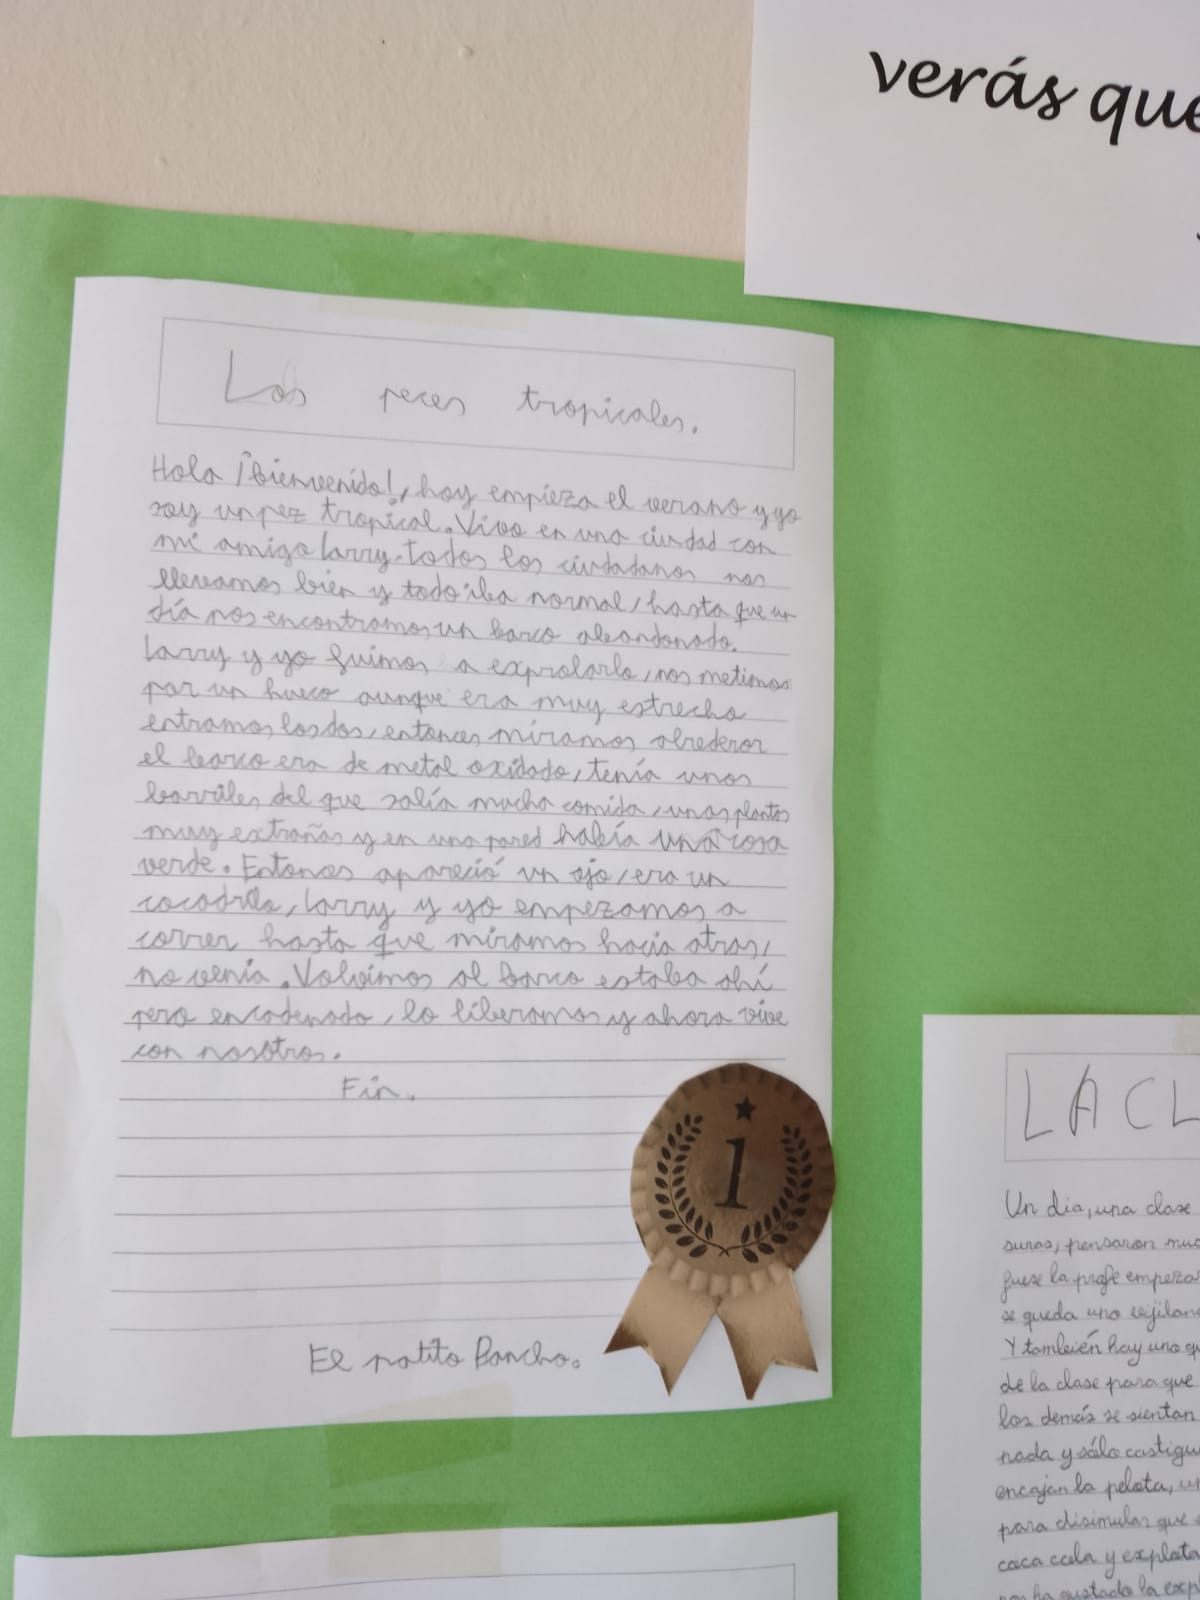 verás que
Los peces tropicales.
Hola ¡bienvenido!, hoy empieza el verano y yo
soy un pez tropical. Vivo en una ciudad con
mi amigo Larry. todos los ciudadanos nos
llevamos bien y todo iba normal, hasta que un
día nos encontramos un barco abandonado.
Larry y yo fuimos a exprolarlo, nos metimos
por un hueco aunque era muy estrecho
entramos los dos, entonces miramos alrededor
el barco era de metal oxidado, tenía unos
barriles del que salía mucha comida, unas plantas
muy extrañas y en una pared había una cosa
verde. Entonces apareció un ojo, era un
cocodrilo, Larry y yo empezamos a
correr hasta que miramos hacia atras,
no venía. Volvimos al barco estaba ahí
pero encadenado, lo liberamos y ahora vive
con nosotros.
Fin.
1
El patito Pancho.
LA CL
Un dia, una clase
suras, pensaron muc
fuese la profe empeza
se queda uno vijilan
Y también hay uno q
de la clase para que
los demás se sientan
nada y sólo castigu
encajan la pelota, u
para disimular que
coca cola y explota
nos ha gustado la expl